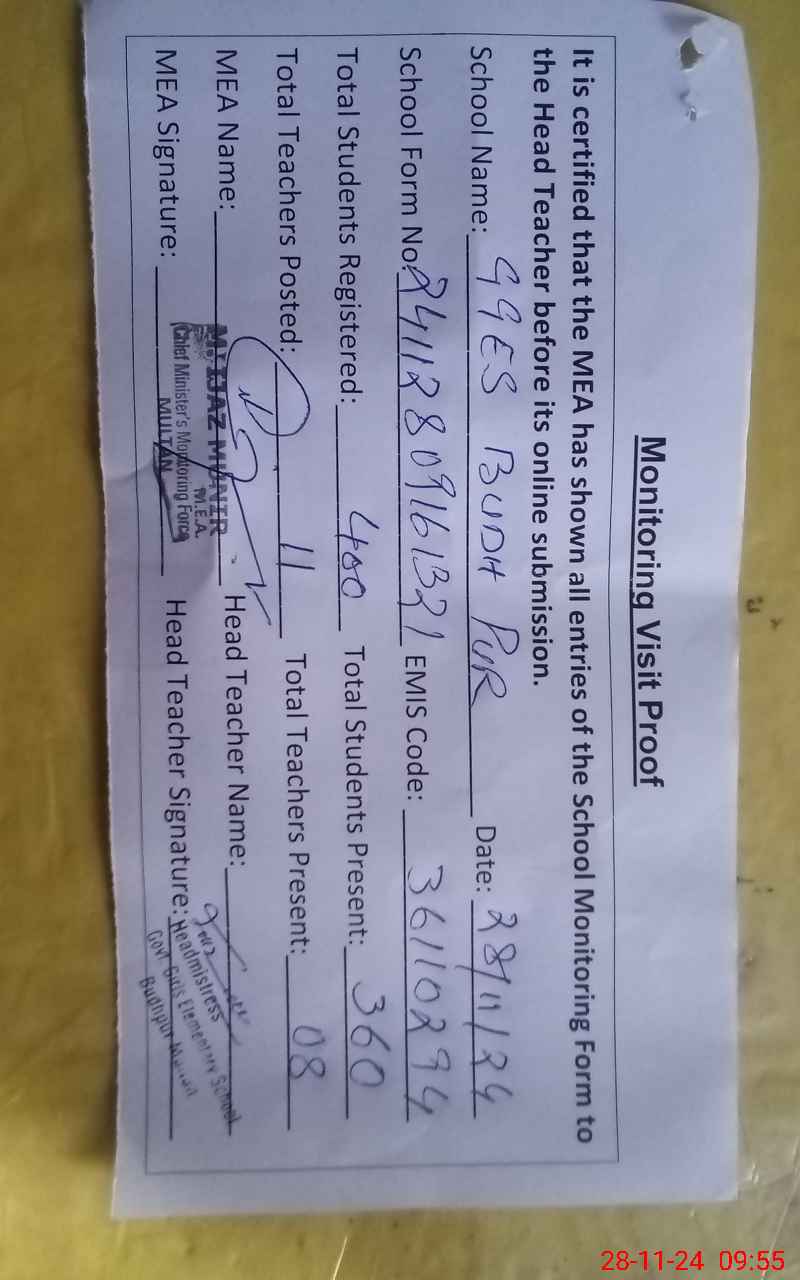 Monitoring Visit Proof
It is certified that the MEA has shown all entries of the School Monitoring Form to
the Head Teacher before its online submission.
School Name: GGES BUDH PUR Date: 28/11/24
School Form No: 24112809161321 EMIS Code: 36110294
Total Students Registered: 400 Total Students Present: 360
Total Teachers Posted: 11 Total Teachers Present: 08
MEA Name: Head Teacher Name:
MUNIR
M.E.A.
Chief Minister's Monitoring Force
MULTAN
MEA Signature: Head Teacher Signature:
Headmistress
Govt Girls Elementary School
Budhpur Multan
28-11-24 09:55